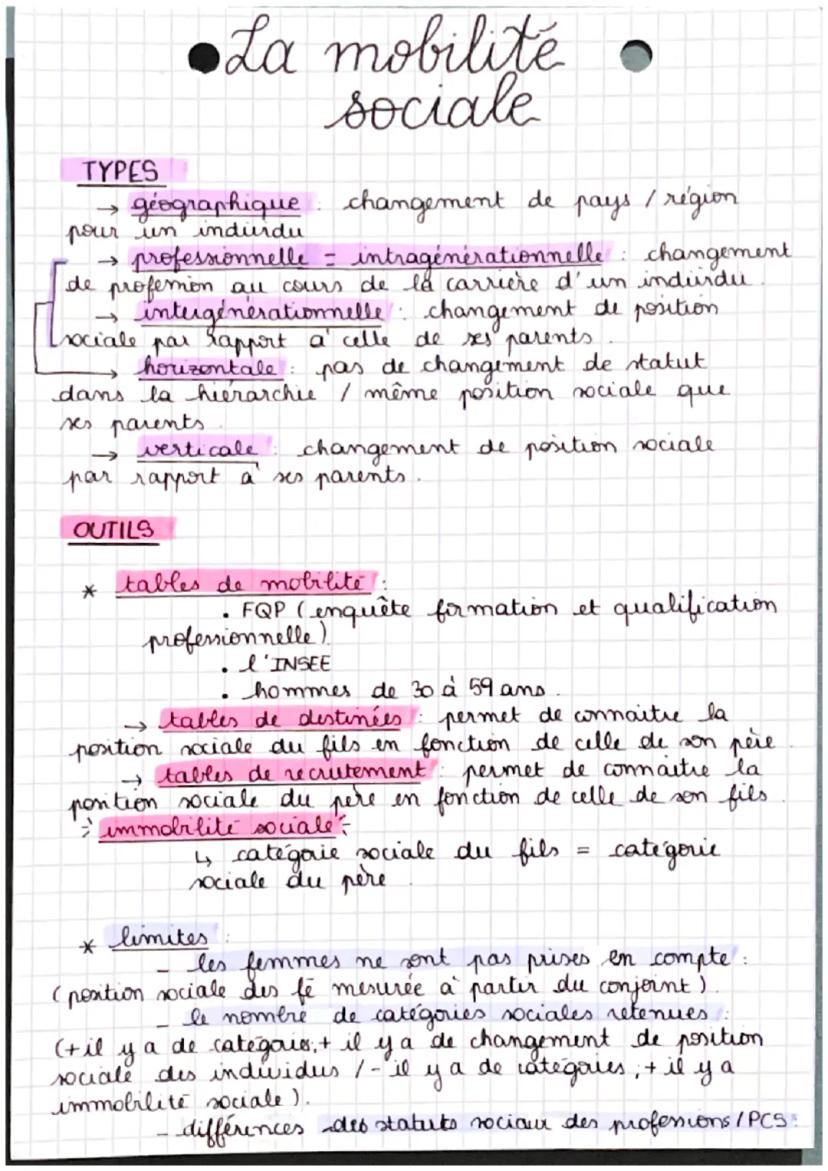 La mobilité
sociale
TYPES
→ géographique : changement de pays / région
pour un individu
→ professionnelle = intragénérationnelle : changement
de profession au cours de la carrière d'un individu.
→ intergénérationnelle : changement de position
sociale par rapport à celle de ses parents.
→ horizontale : pas de changement de statut
dans la hiérarchie / même position sociale que
ses parents.
→ verticale : changement de position sociale
par rapport à ses parents.
OUTILS
* tables de mobilité :
. FQP (enquête formation et qualification
professionnelle)
. l'INSEE
. hommes de 30 à 59 ans.
→ tables de destinées : permet de connaitre la
position sociale du fils en fonction de celle de son père.
→ tables de recrutement : permet de connaitre la
position sociale du père en fonction de celle de son fils.
immobilité sociale
↳ catégorie sociale du fils = catégorie
sociale du père
* limites :
- les femmes ne sont pas prises en compte :
(position sociale des fê mesurée à partir du conjoint).
- le nombre de catégories sociales retenues :
(+ il y a de catégories, + il y a de changement de position
sociale des individus / - il y a de catégories, + il y a
immobilité sociale).
- différences des statuts sociaux des professions / PCS :